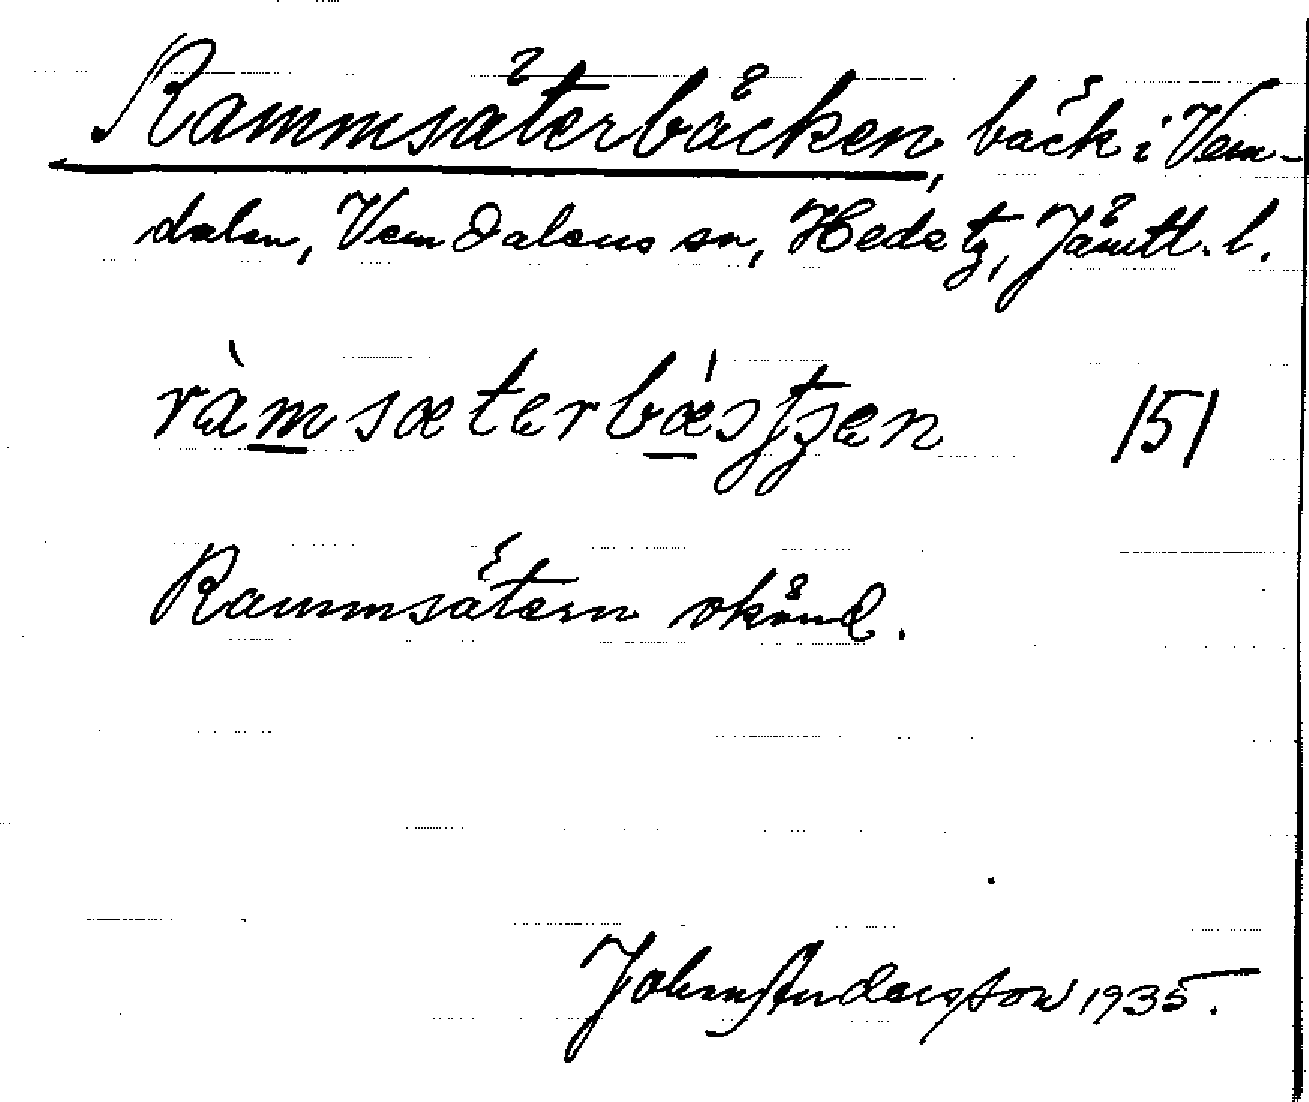 Rammsäterbäcken, bäck i Vem-
dalen, Vemdalens sn, Hede tg, Jämtl. l.
ràmsæterbæ̀stʃen /5/
Rammsätern okänd.
John Andersson 1935.